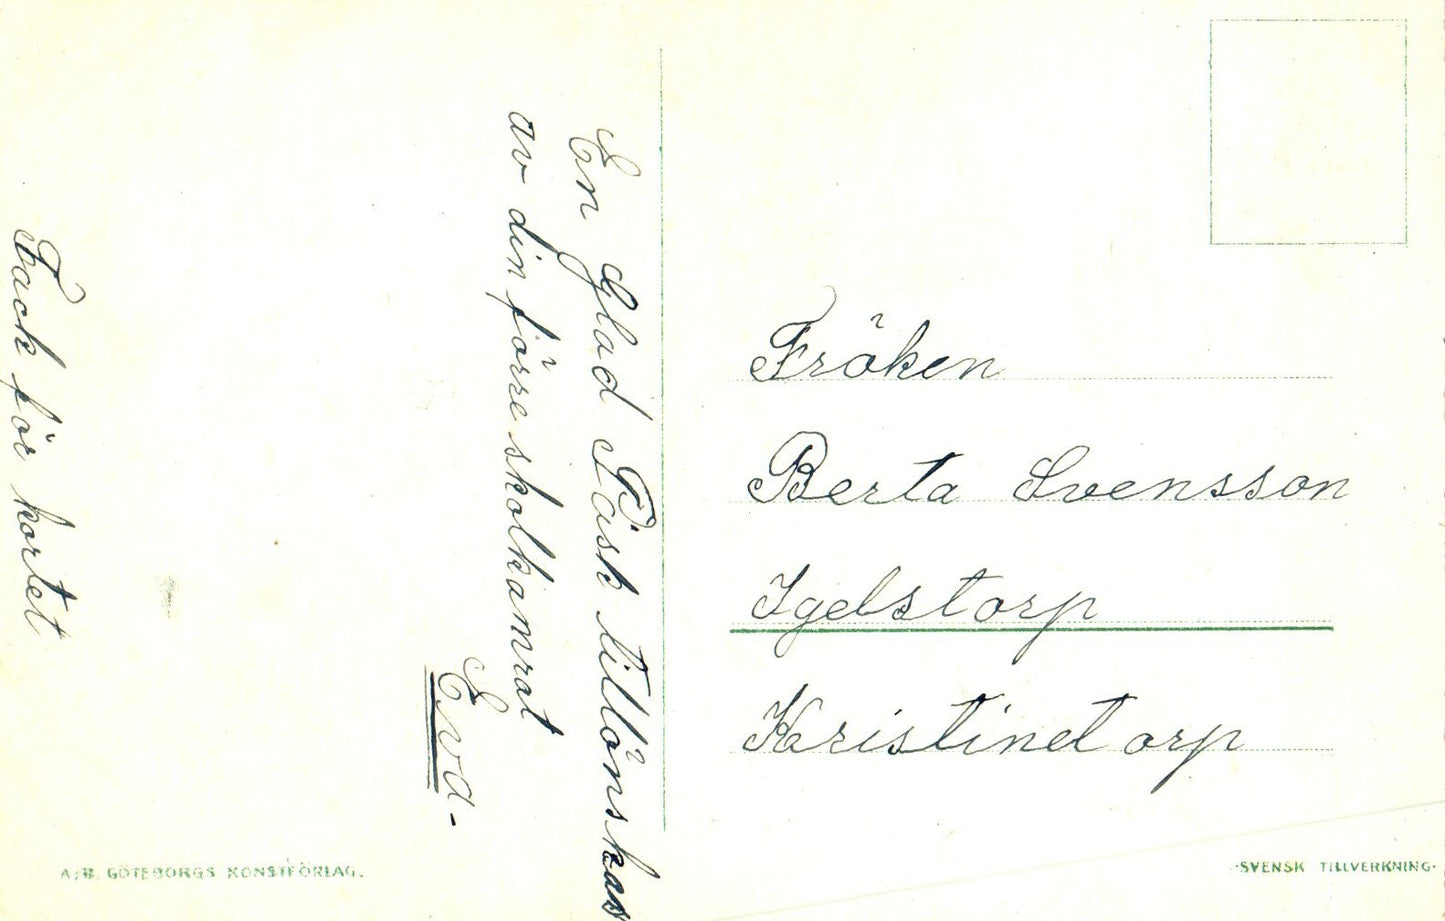 En Glad Påsk tillönskas
av din förre skolkamrat
Eva -
Tack för kortet
Fröken
Berta Svensson
Igelstorp
Kristinetorp
A.B. GÖTEBORGS KONSTFÖRLAG.
·SVENSK TILLVERKNING·